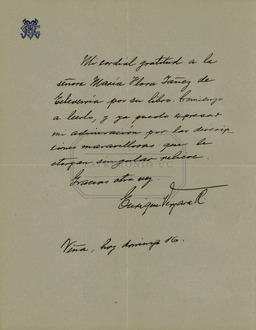 Mi cordial gratitud a la
señora María Flora Yáñez de
Echeverría por su libro. Comienzo
a leerlo, y ya puedo expresar
mi admiración por las descrip-
ciones maravillosas que le
otorgan singular relieve.
Gracias otra vez
Enrique Vergara R
Viña, hoy domingo 16.